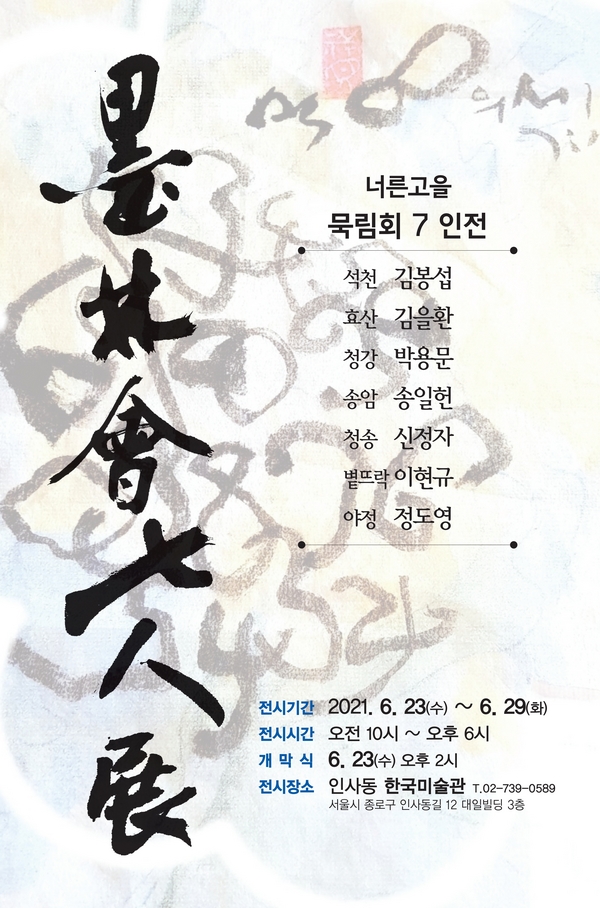 墨林會七人展
너른고을
묵림회 7 인전
석천 김봉섭
효산 김을환
청강 박용문
송암 송일헌
청송 신정자
볕뜨락 이현규
야정 정도영
전시기간 2021. 6. 23(수) ~ 6. 29(화)
전시시간 오전 10시 ~ 오후 6시
개 막 식 6. 23(수) 오후 2시
전시장소 인사동 한국미술관 T.02-739-0589
서울시 종로구 인사동길 12 대일빌딩 3층